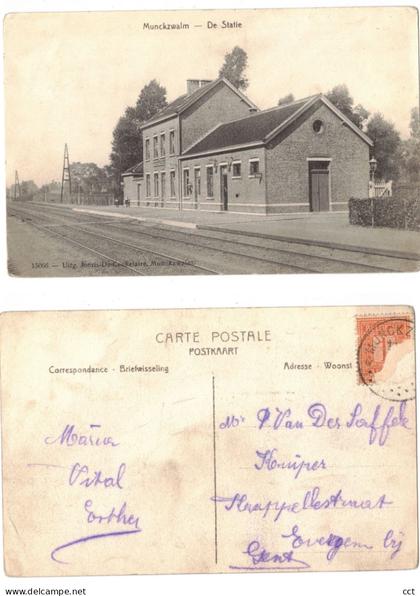 Munckzwalm — De Statie
15066 — Uitg. Joris-De Cockelaire, Munckzwalm
CARTE POSTALE
POSTKAART
Correspondance - Briefwisseling
Adresse - Woonst
Maria
Vital
Esther
Mr P Van Der Saffele
Kuiper
Knappellestraat
Evergem bij
Gent
cct